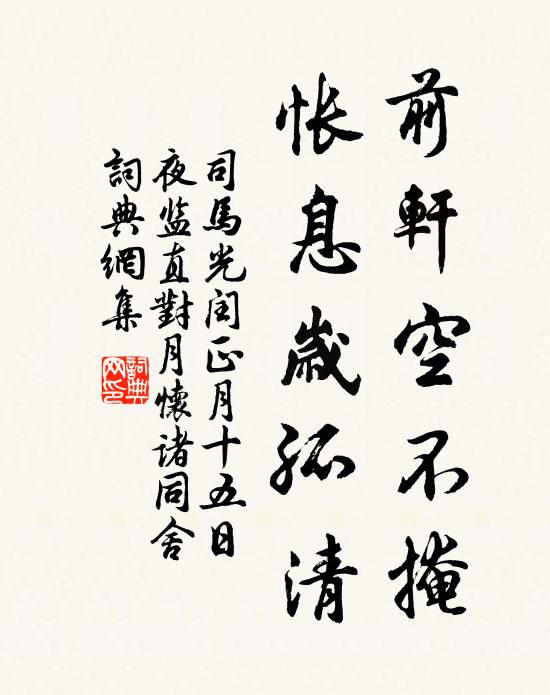 前軒空不掩
怅息歲孤清
司馬光閏正月十五日
夜监直對月懷诸同舍
詞典網集
詞典
网印